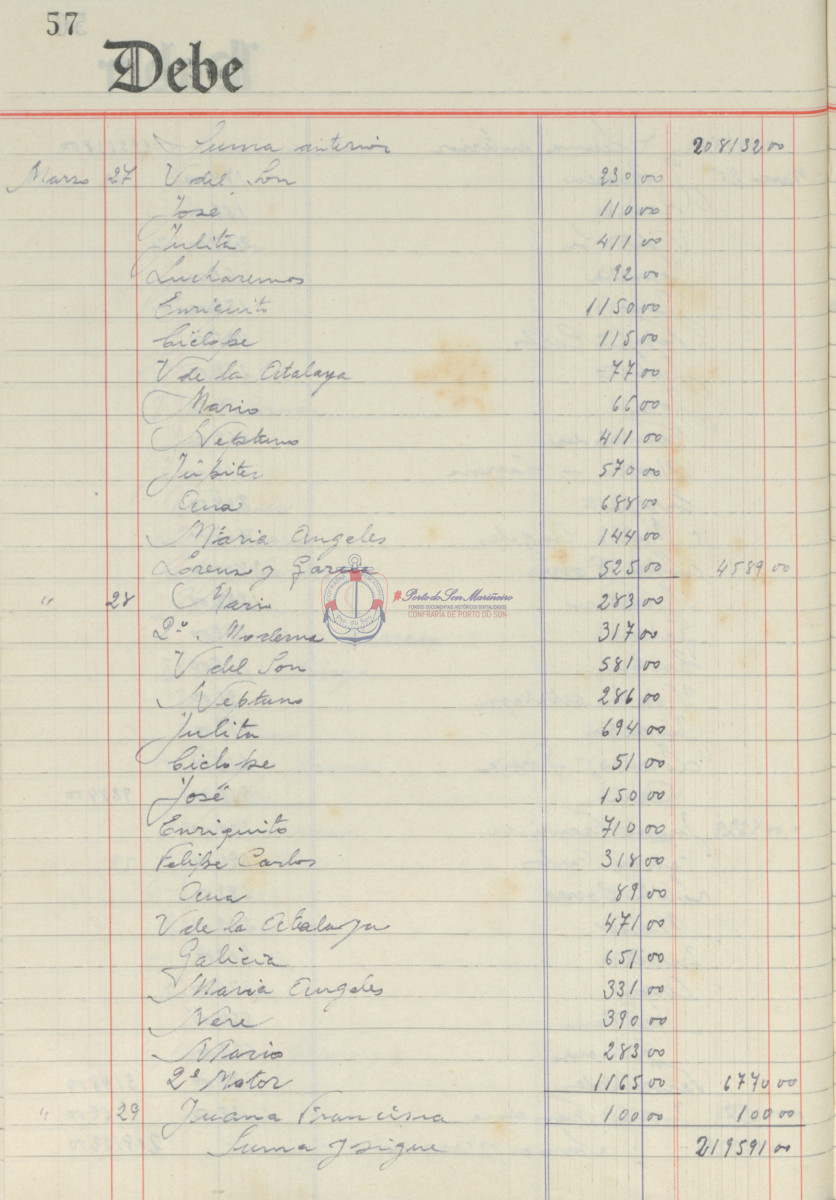 57
Debe
Suma anterior 208132 00
Marzo 27 V del Son 230 00
José 110 00
Julita 411 00
Lucharemos 92 00
Enriquito 1150 00
Ciclope 115 00
V de la Atalaya 77 00
Mario 66 00
Neptuno 411 00
Júpiter 570 00
Ana 688 00
Maria Angeles 144 00
Lorenzo y García 525 00 4589 00
" 28 Mario 283 00
2º. Moderna 317 00
V del Son 581 00
Neptuno 286 00
Julita 694 00
Ciclope 51 00
José 150 00
Enriquito 710 00
Felipe Carlos 318 00
Ana 89 00
V de la Atalaya 471 00
Galicia 651 00
Maria Angeles 331 00
Nere 390 00
Mario 283 00
2º Motor 1165 00 6770 00
" 29 Juana Francisca 100 00 100 00
Suma y sigue 219591 00
#Porto do Son Mariñeiro
FONDOS DOCUMENTAIS HISTÓRICOS DIXITALIZADOS
CONFRARÍA DE PORTO DO SON